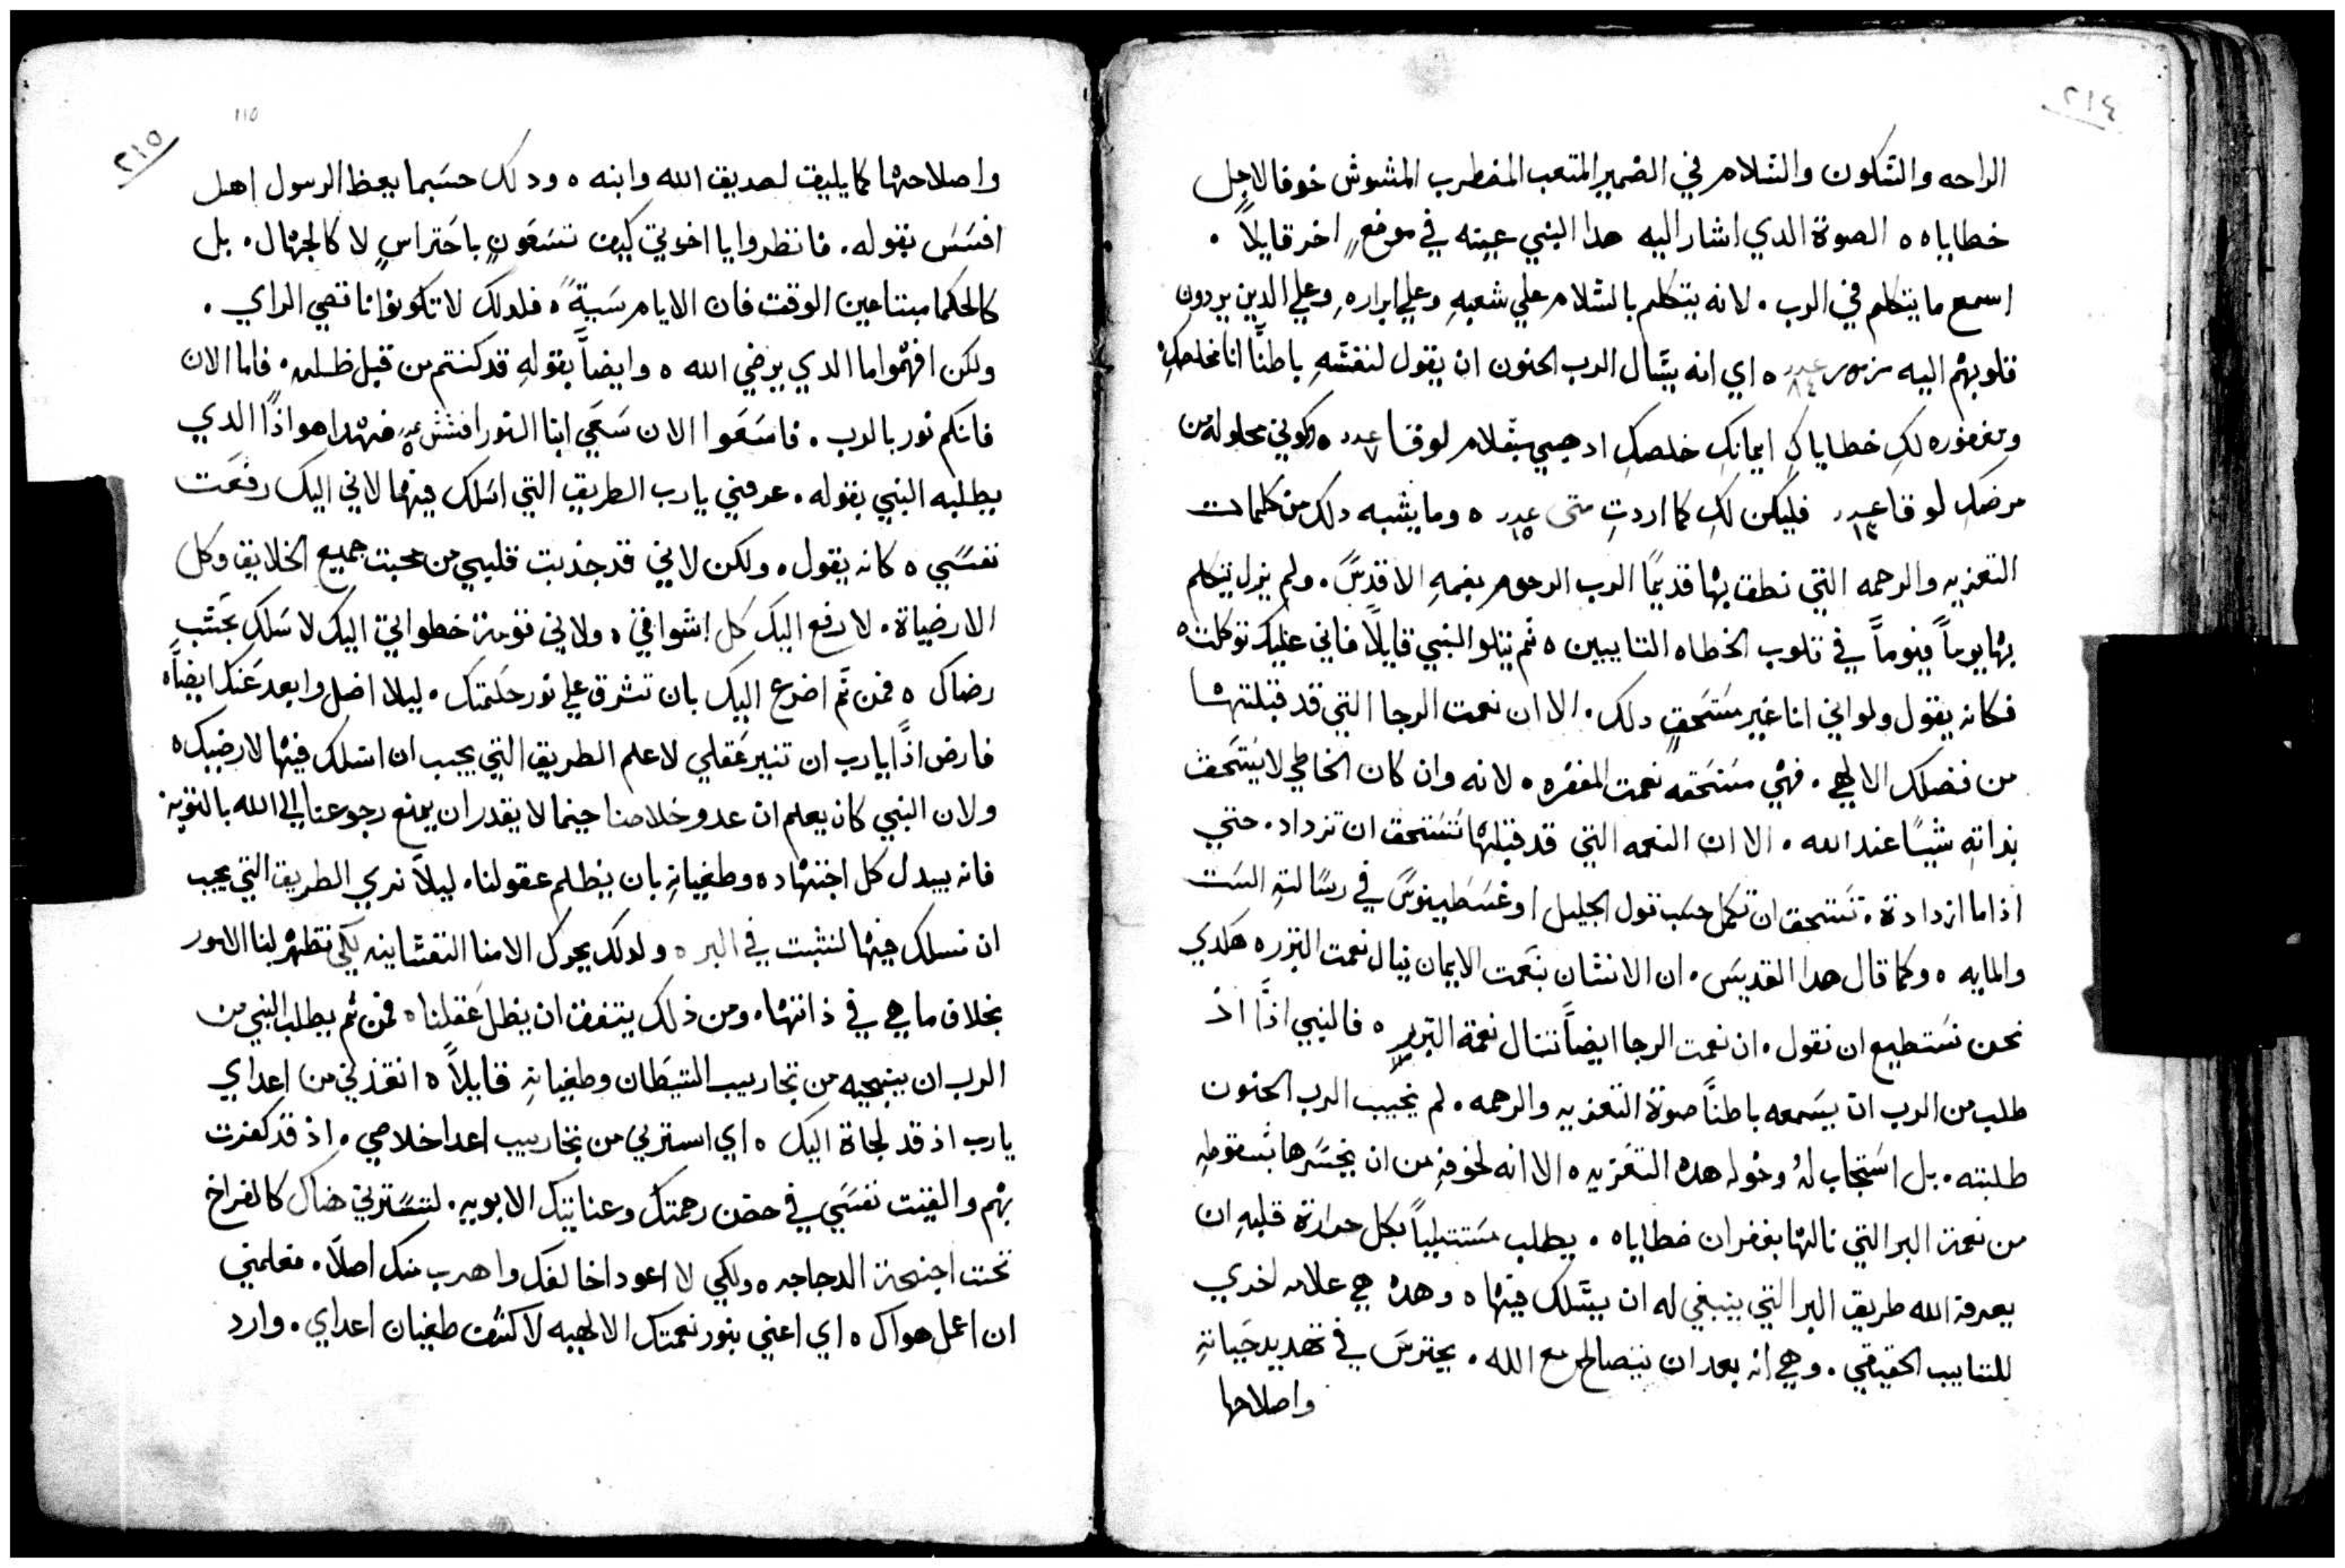 ٢١٤
الراحه والسَكون والسَلام في الضمير المتعب المضطرب المشوش خوفا لاجل
خطاياه ه الصوة الدي اشار اليه هدا النبي عينه في موضعٍ اخر قايلاً .
اسمع ما يتكلم في الرب . لانه يتكلم بالسَلام علي شعبهِ وعلي ابرارهِ وعلي الدين يردون
قلوبهم اليه مزمور عدد ٨٤ ه اي انه يسَال الرب الحنون ان يقول لنفسَهِ باطناً انا مخلصكِ
ومغفوره لكِ خطاياكِ ايمانكِ خلصكِ ادهبي بسَلام لوقا عدد ٧ ه وكوني محلوله من
مرضكِ لوقا عدد ١٣ فليكن لكِ كما اردتِ متى عدد ١٥ ه وما يشبه دلك من كلمات
التعزيه والرحمه التي نطق بها قديمًا الرب الرحوم بفمهِ الاقدسَ . ولم يزل يتكلم
بها يوماً فيوماً في قلوب الخطاه التايبين ه ثم يتلو النبي قايلاً فاني عليك توكلت ه
فكانه يقول ولو اني انا غير مسَتحقٍ دلك . الا ان نعمت الرجا التي قد قبلتها
من فضلك الالهي . فهي مسَتحقه نعمت المغفره . لانه وان كان الخاطي لا يسَتحق
بداتهِ شيًا عند الله . الا ان النعمه التي قد قبلها تسَتحق ان تزداد . حتي
اذا ما ازدادة . تسَتحق ان تكمل حسَب قول الجليل اوغسَطينوسَ في رسَالتهِ السَت
والمايه ه وكما قال هدا القديسَ . ان الانسَان بنعَمت الايمان ينال نعمت التبرره هكدي
نحن نسَتطيع ان نقول . ان نعمت الرجا ايضاً تنال نعمة التبرر ه فالنبي اذًا اذ
طلب من الرب ان يسَمعه باطناً صوة التعزيه والرحمه . لم يخيب الرب الحنون
طلبته . بل اسَتجاب لهُ وخوله هده التعزيه ه الا انه لخوفهِ من ان يخسَرها بسَقوطهِ
من نعمة البر التي نالها بغفران خطاياه . يطلب بكل حرارة قلبهِ ان
يعرفه الله طريق البر التي ينبغي له ان يسَلك فيها ه وهدهُ هي علامه اخري
للتايب الحقيقي . وهي انه بعد ان يتصالح مع الله . يحترسَ في تهديد حَياتهِ
واصلاحها
١١٥
٢١٥
واصلاحها كما يليق لصديق الله وابنه ه ودلك حسَبما يعظ الرسول اهل
افسَسَ بقوله . فانظروا يا اخوتي كيف تسَعَون باحَتراسٍ لا كالجهال . بل
كالحكما مبتاعين الوقت فان الايام سَيةً ه فلدلك لا تكونوا ناقصي الراي .
ولكن افهموا ما الدي يرضي الله ه وايضاً بقولهِ قد كنتم من قبل ظلمه . فاما الان
فانكم نور بالرب . فاسَعَوا الان سَعَي ابنا النور افسَسَ عدد ٥ فهدا هو اذًا الدي
يطلبه النبي بقوله . عرفني يارب الطريق التي اسَلك فيها لاني اليك رفعَت
نفسَي ه كانه يقول . ولكن لاني قد جذبت قلبي من محبت جميع الخلايق وكل
الارضياة . لارفع اليك كل اشواقي . ولاني قومة خطواتي اليك لاسَلك بحَسَب
رضاك ه فمن ثَم اضرع اليك بان تشرق علي نور حكَمتك . ليلا اضل وابعد عَنك ايضاً ه
فارض اذًا يارب ان تنير عَقلي لاعلم الطريق التي يجب ان اسَلك فيها لارضيك ه
ولان النبي كان يعلم ان عدو خلاصنا حينما لا يقدر ان يمنع رجوعنا الي الله بالتوبة
فانه يبدل كل اجتهاده وطغيانهِ بان يظلم عقولنا . ليلاَ نري الطريق التي يجب
ان نسلك فيها لنثبت في البر ه ولدلك يحرك الامنا النفسَانيه لكي تظهر لنا الامور
بخلاف ما هي في ذاتها . ومن ذلك يتفق ان يظل عَقلنا ه فمن ثم يطلب النبي من
الرب ان ينجيه من تجاريب الشيَطان وطغيانهِ قايلاً ه انقذني من اعداي
يارب اذ قد لجاة اليك ه اي اسَترني من تجاريب اعدا خلاصي . اذ قد كفرت
بهم والقيت نفسَي في حضن رحمتك وعنايتك الابويه . لتسَترني هناك كالفراخ
تحت اجنحة الدجاجه ه ولكي لا اعود اخالفك واهرب منك اصلاً ه فعلمني
ان اعمل هواك ه اي اعني بنور نعمتك الالهيه لاكشف طغيان اعداي . وارد